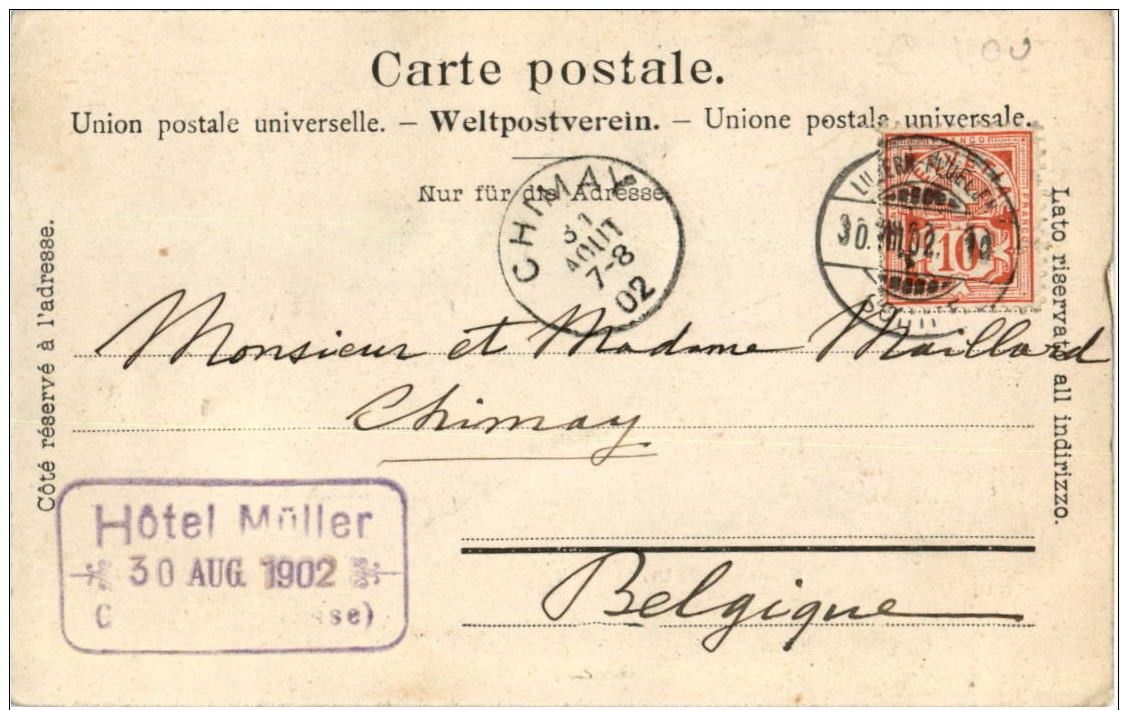 Carte postale.
Union postale universelle. — Weltpostverein. — Unione postale universale.
Nur für die Adresse
CHIMAY
31
AOUT
7-8
02
30.VIII.02.
FRANCO
FRANCO
10
Côté réservé à l'adresse.
Lato riservato all indirizzo.
Monsieur et Madame Maillard
Chimay
Belgique
Hôtel Müller
30 AUG. 1902
se)